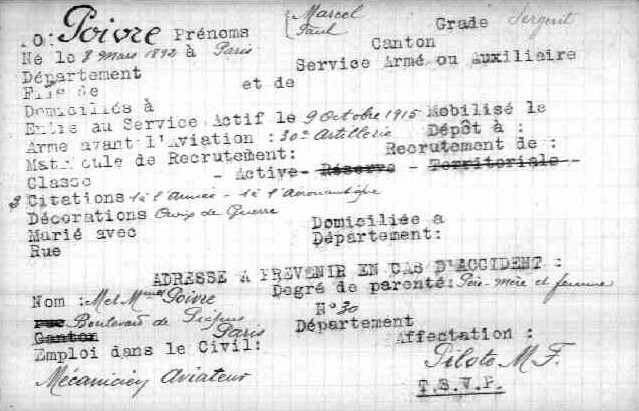 NO: Poivre Prénoms { Marcel Paul Grade Sergent
Né le 8 Mars 1892 à Paris Canton
Département Service Armé ou Auxiliaire
Fils de et de
Domiciliés à
Entré au Service Actif le 9 Octobre 1915 Mobilisé le
Arme avant l'Aviation : 30e Artillerie Dépôt à :
Matricule de Recrutement: Recrutement de :
Classe - Active - Réserve - Territoriale -
3 Citations 1 à l'Armée - 1 à l'aéronautique
Décorations Croix de Guerre
Marié avec Domiciliée a
Rue Département:
ADRESSE A PREVENIR EN CAS D'ACCIDENT :
Nom : Mr et Mme Poivre Degré de parenté: Père - mère et femme
rue Boulevard de Picpus N° 30
Canton Paris Département
Emploi dans le Civil: Affectation :
Mécanicien Aviateur Pilote M.F.
T.S.V.P.